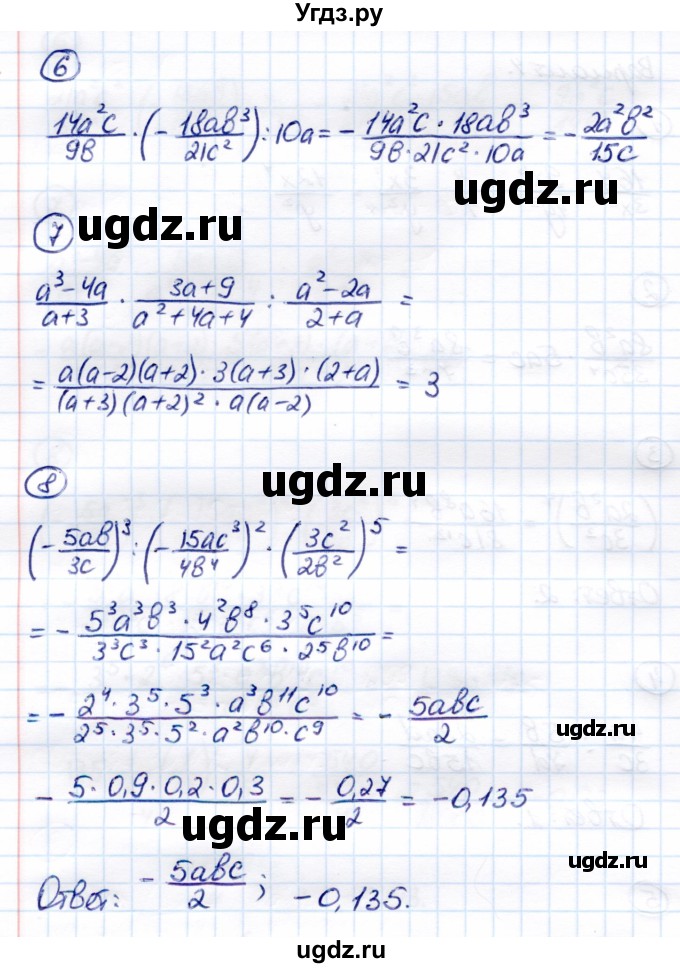 Угдз.ру
6
14a²c/9в · (−18aв³/21c²) : 10a = −14a²c · 18aв³/9в · 21c² · 10a = −2a²в²/15c
ugdz.ru
7
ugdz.ru
a³−4a/a+3 · 3a+9/a²+4a+4 : a²−2a/2+a =
= a(a−2)(a+2) · 3(a+3) · (2+a)/(a+3)(a+2)² · a(a−2) = 3
8
ugdz.ru
(−5aв/3c)³ : (−15ac³/4в⁴)² · (3c²/2в²)⁵ =
= −5³a³в³ · 4²в⁸ · 3⁵c¹⁰/3³c³ · 15²a²c⁶ · 2⁵в¹⁰ =
= −2⁴ · 3⁵ · 5³ · a³в¹¹c¹⁰/2⁵ · 3⁵ · 5² · a²в¹⁰ · c⁹ = −5aвc/2
ugdz.ru
−5 · 0,9 · 0,2 · 0,3/2 = −0,27/2 = −0,135
ugdz.ru
Ответ: −5aвc/2; −0,135.
ugdz.ru